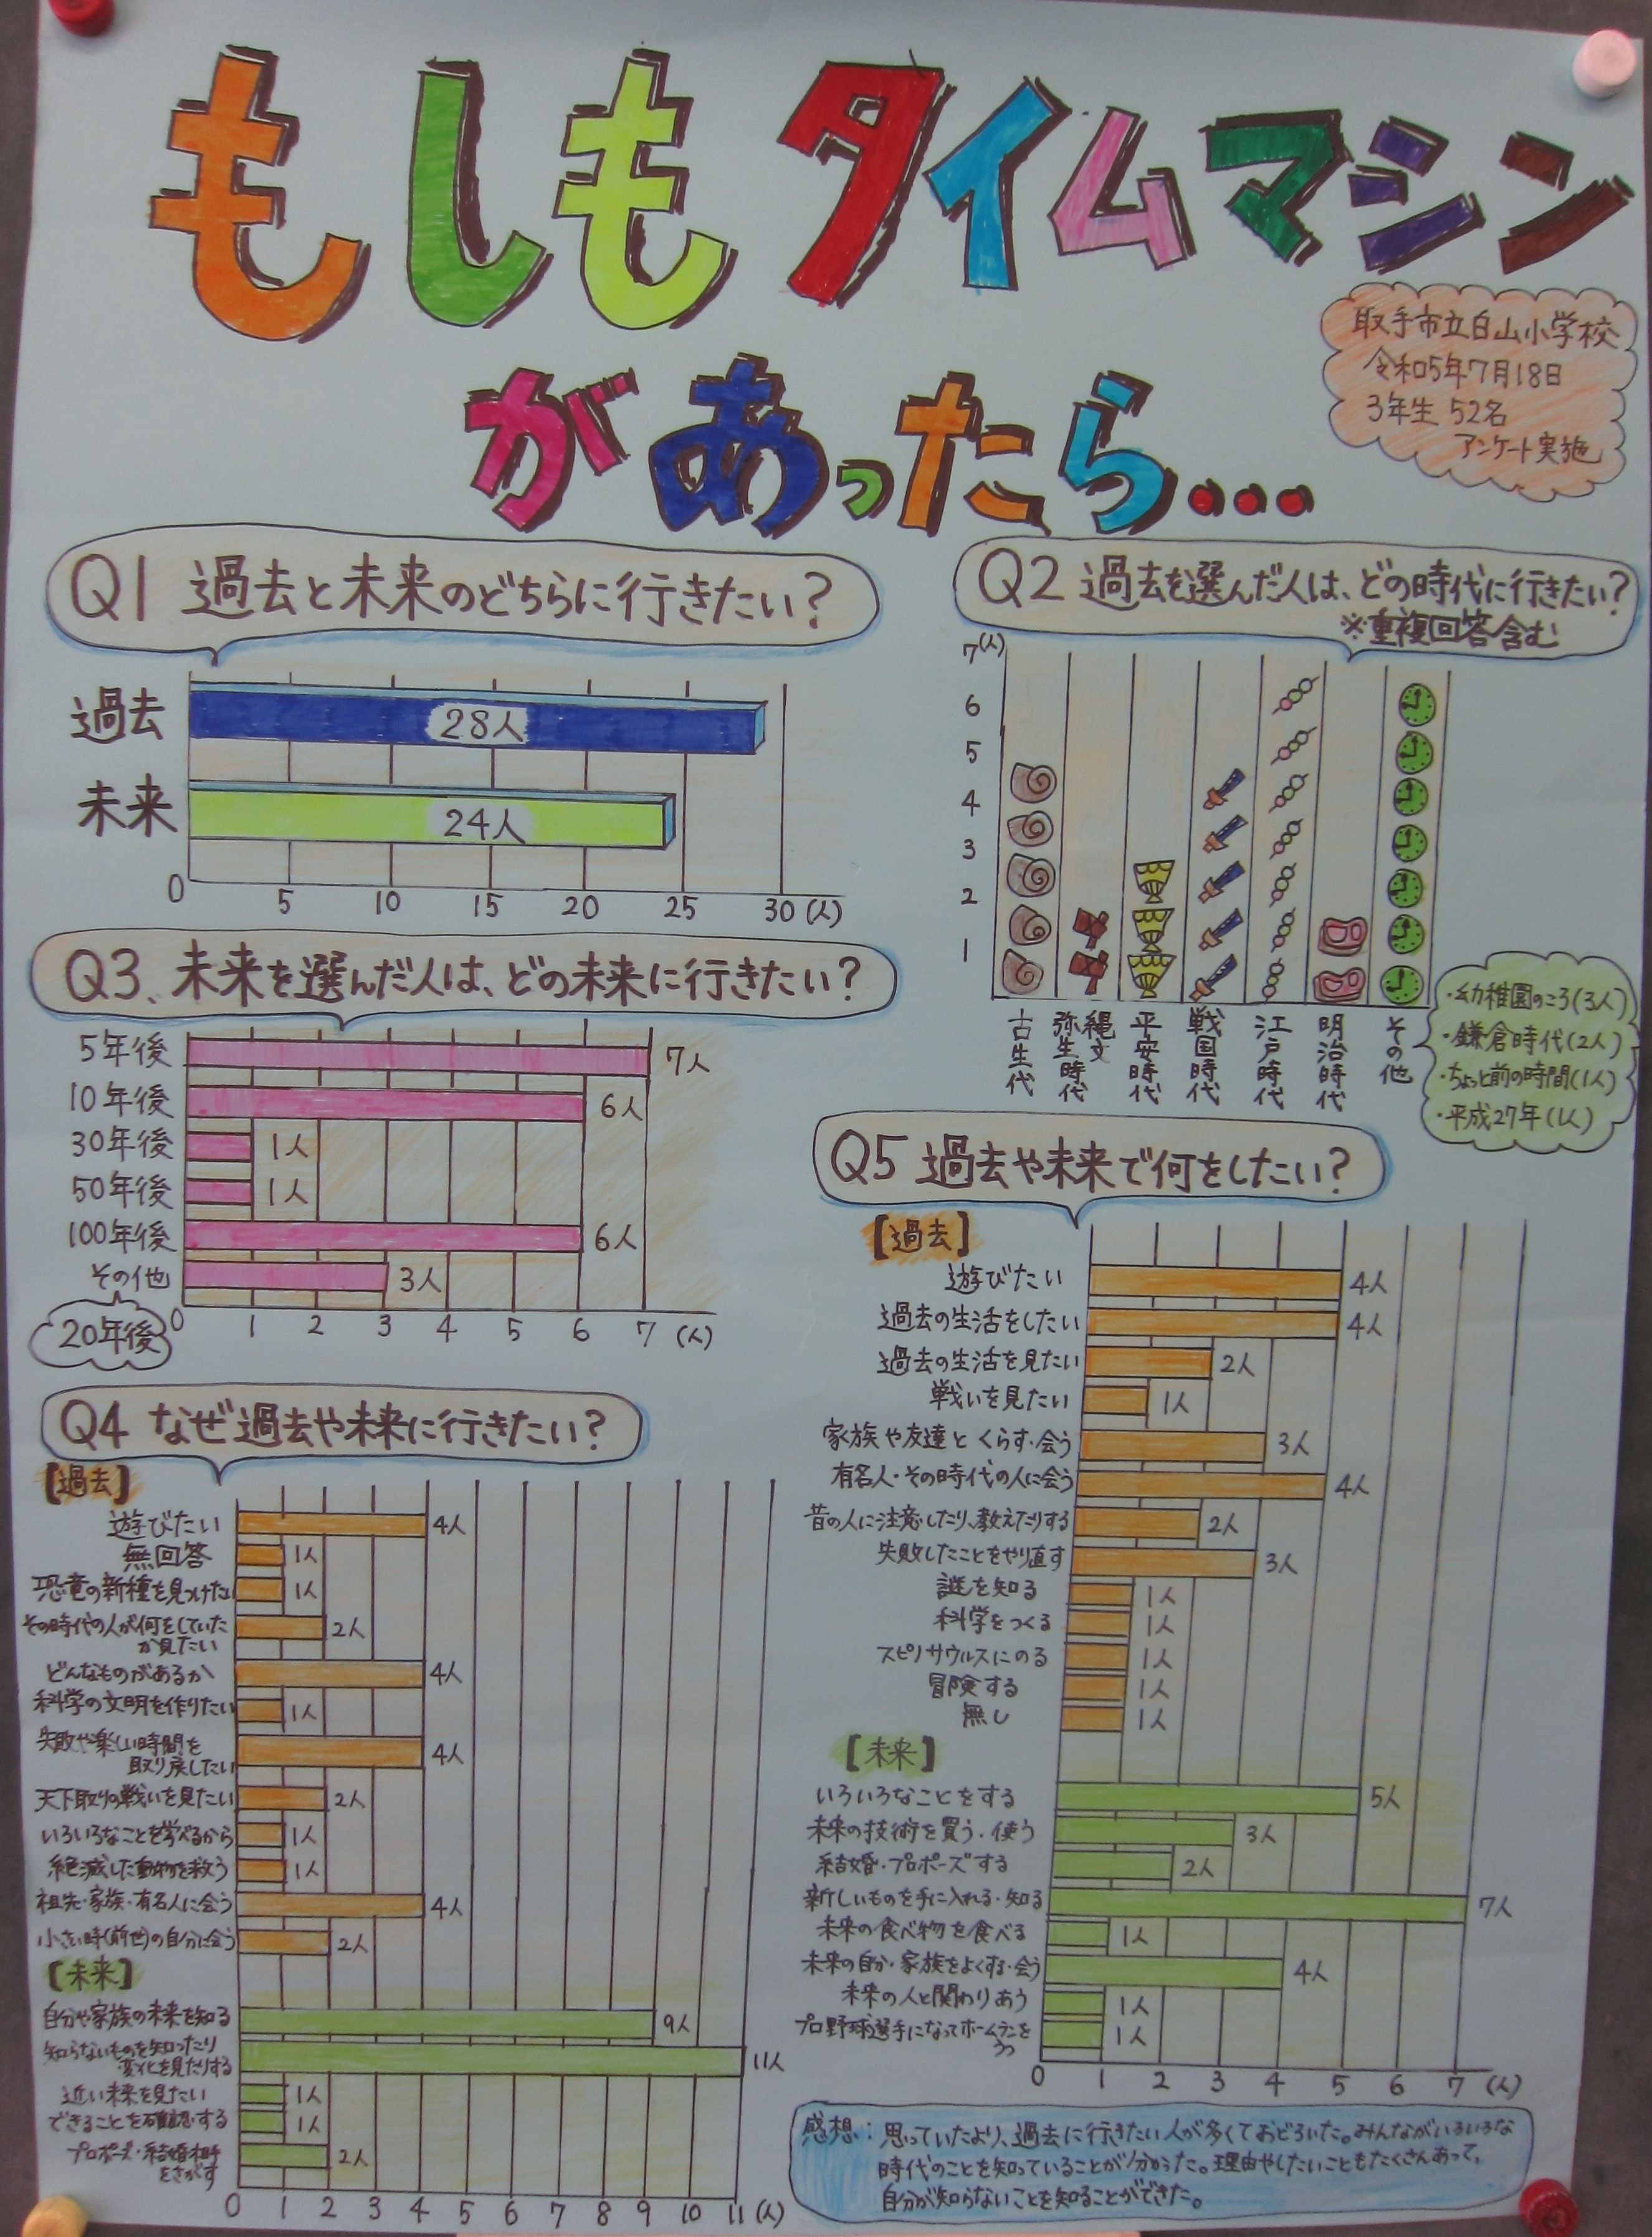 もしもタイムマシン
があったら...
取手市立白山小学校
令和5年7月18日
3年生 52名
アンケート実施
Q1 過去と未来のどちらに行きたい?
過去
28人
未来
24人
0 5 10 15 20 25 30 (人)
Q2 過去を選んだ人は、どの時代に行きたい?
※重複回答含む
7(人)
6
5
4
3
2
1
古生代
縄文
弥生時代
平安時代
戦国時代
江戸時代
明治時代
その他
・幼稚園のころ(3人)
・鎌倉時代(2人)
・ちょっと前の時間(1人)
・平成27年(1人)
Q3、未来を選んだ人は、どの未来に行きたい?
5年後 7人
10年後 6人
30年後 1人
50年後 1人
100年後 6人
その他 3人
20年後
0 1 2 3 4 5 6 7 (人)
Q4 なぜ過去や未来に行きたい?
[過去]
遊びたい 4人
無回答 1人
恐竜の新種を見つけたい 1人
その時代の人が何をしていた
か見たい 2人
どんなものがあるか 4人
科学の文明を作りたい 1人
失敗や楽しい時間を
取り戻したい 4人
天下取りの戦いを見たい 2人
いろいろなことを学べるから 1人
絶滅した動物を救う 1人
祖先・家族・有名人に会う 4人
小さい時(前世)の自分に会う 2人
[未来]
自分や家族の未来を知る 9人
知らないものを知ったり
変化を見たりする 11人
近い未来を見たい 1人
できることを確認する 1人
プロポーズ・結婚相手
をさがす 2人
0 1 2 3 4 5 6 7 8 9 10 11 (人)
Q5 過去や未来で何をしたい?
[過去]
遊びたい 4人
過去の生活をしたい 4人
過去の生活を見たい 2人
戦いを見たい 1人
家族や友達とくらす・会う 3人
有名人・その時代の人に会う 4人
昔の人に注意したり、教えたりする 2人
失敗したことをやり直す 3人
謎を知る 1人
科学をつくる 1人
スピノサウルスにのる 1人
冒険する 1人
無し 1人
[未来]
いろいろなことをする 5人
未来の技術を買う・使う 3人
結婚・プロポーズする 2人
新しいものを手に入れる・知る 7人
未来の食べ物を食べる 1人
未来の自分・家族をよくする・会う 4人
未来の人と関わりあう 1人
プロ野球選手になってホームランを
うつ 1人
0 1 2 3 4 5 6 7 (人)
感想:思っていたより、過去に行きたい人が多くておどろいた。みんながいろいろな
時代のことを知っていることが分かった。理由やしたいこともたくさんあって、
自分が知らないことを知ることができた。